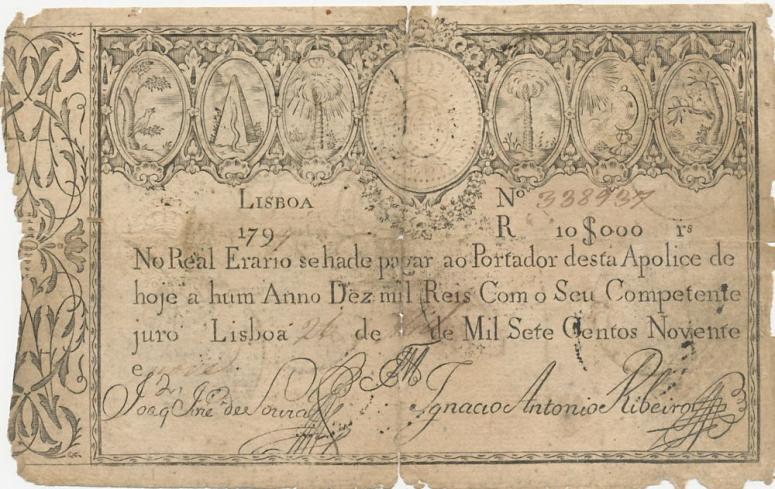 Lisboa
Nº 338937
179
R 10$000 rs
No Real Erario se hade pagar ao Portador desta Apolice de
hoje a hum Anno Dez mil Reis Com o Seu Competente
juro Lisboa 26 de de Mil Sete Centos Novente
e
Joaq Jné de Souza
Ignacio Antonio Ribeiro